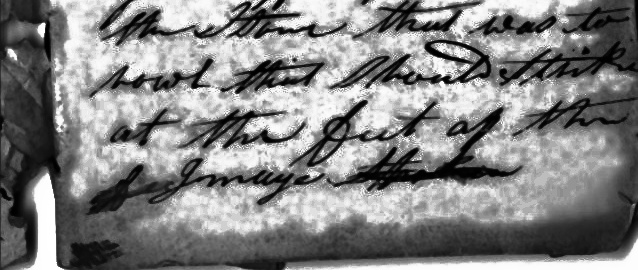 the Stone that was to
 that should strike
at the feet of the
Image